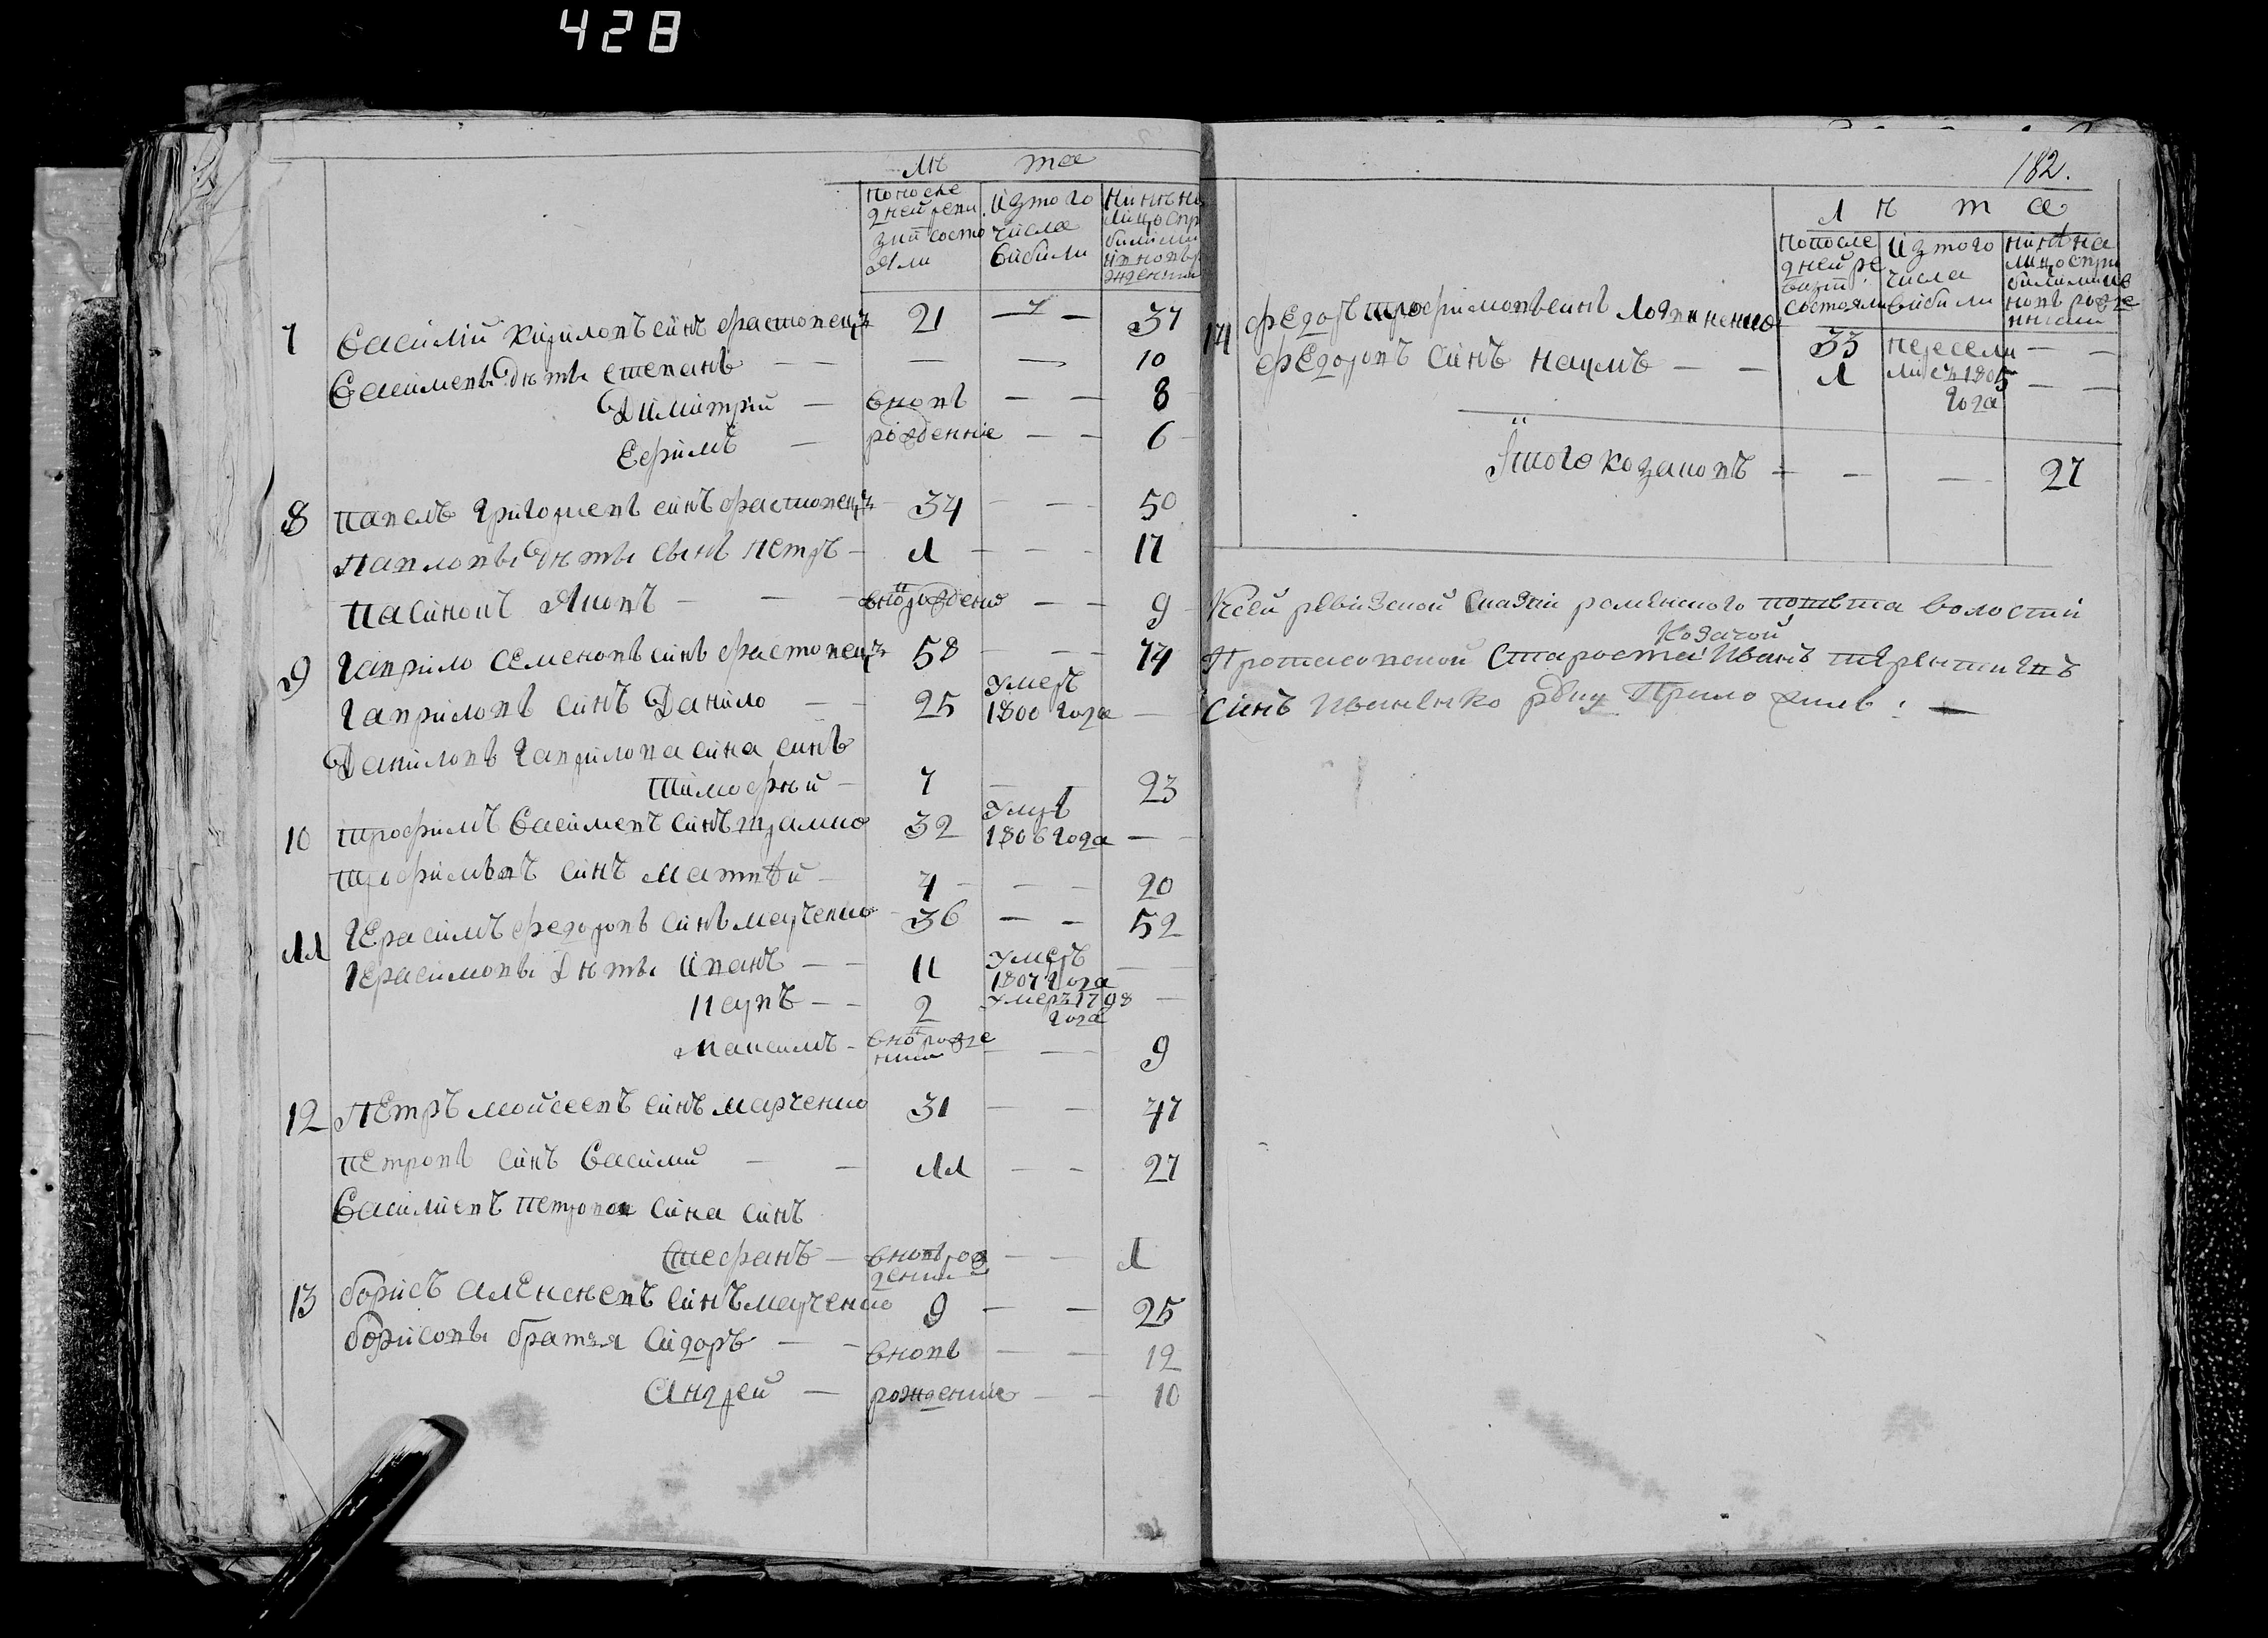 428
Лѣта
Попосле дней реви зии состо яли
Изтого числа Выбыли
Нинѣ на лицо спри былыми и вновь р ожденими
7 Василий Кириловъ синъ фастовецъ 21 — — 37
Василевы Дѣты Степанъ — — — 10
Димитрий — вновь — — 8
Ефимъ — рожденние — — 6
8 Павелъ Григориевъ синъ фастовецъ 34 — — 50
Павловы Дѣты сынъ Петръ — 1 — — 17
Пасинокъ Яковъ — — вно рождено — — 9
9 Гаврило Семеновъ синъ фастовецъ 58 — — 74
Гавриловъ синъ Данило — — 25 Умеръ 1800 Года —
Даниловъ Гаврилова сина синъ
Тимофѣй — 7 — — 23
10 Трофимъ Василиевъ синъ 32 Умръ 1806 Года —
Трофимовъ синъ Матвѣй — 4 — — 20
11 Герасимъ федоровъ синъ Марченко 36 — — 52
Герасимовы Дѣты Иванъ — — 11 Умеръ 1807 Года —
2 Умеръ 1798 Года —
Максимъ — вно рожде ний — — 9
12 Петръ Мойсеевъ синъ Марченко 31 — — 47
Петровъ синъ Василий — — 11 — — 27
Василиевъ Петрова сина синъ
Стефанъ — вновь рож дений — — 1
13 борисъ Алексѣевъ синъ Марченко 9 — — 25
борисовы братья Сидоръ — — вновь — — 12
Андрей — рождение — — 10
182.
Лѣта
Попосле дней ре визии состояли
Изтого числа вибили
Нинѣ на лицо спри былыми и в новь рожде ниими
14 федоръ Трофимовъ синъ 33 Пересели — —
федоровъ синъ Наумъ — — 1 лися 1805 Года — —
Итого козаковъ — — — 27
Ксей ревизской сказки роменского повѣта волости
Козачой
Протасовской Староста Иванъ Терентиевъ
синъ Иваненко руку Приложилъ: —